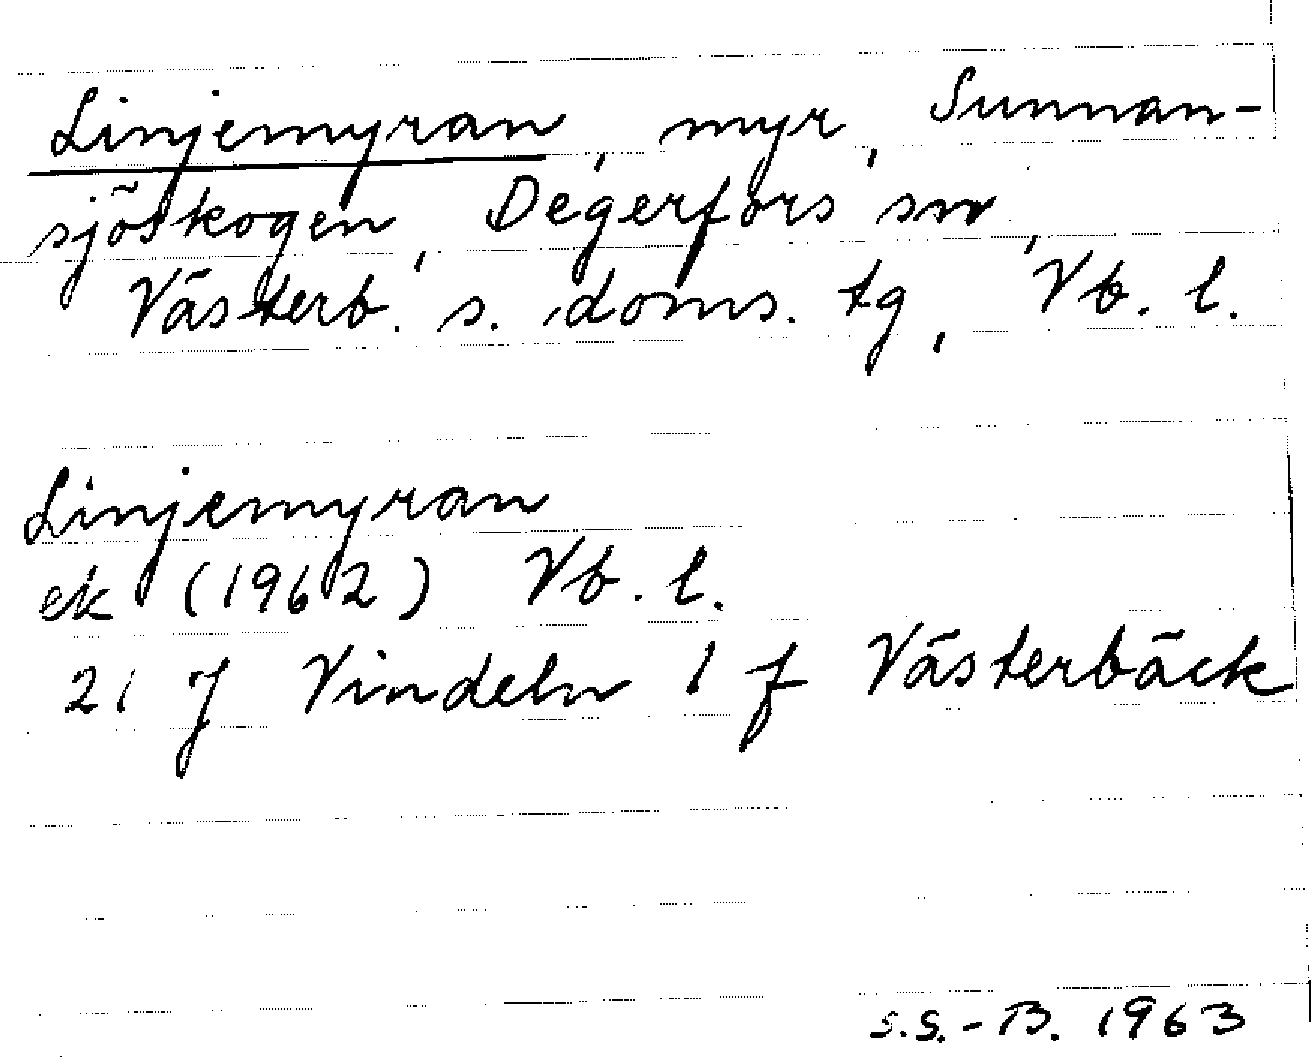 Linjemyran, myr, Sunnan-
sjöskogen, Degerfors sn,
Västerb. s. doms. tg, Vb. l.
Linjemyran
ek (1962) Vb. l.
21 J Vindeln 1 f Västerbäck
S.S.-B. 1963